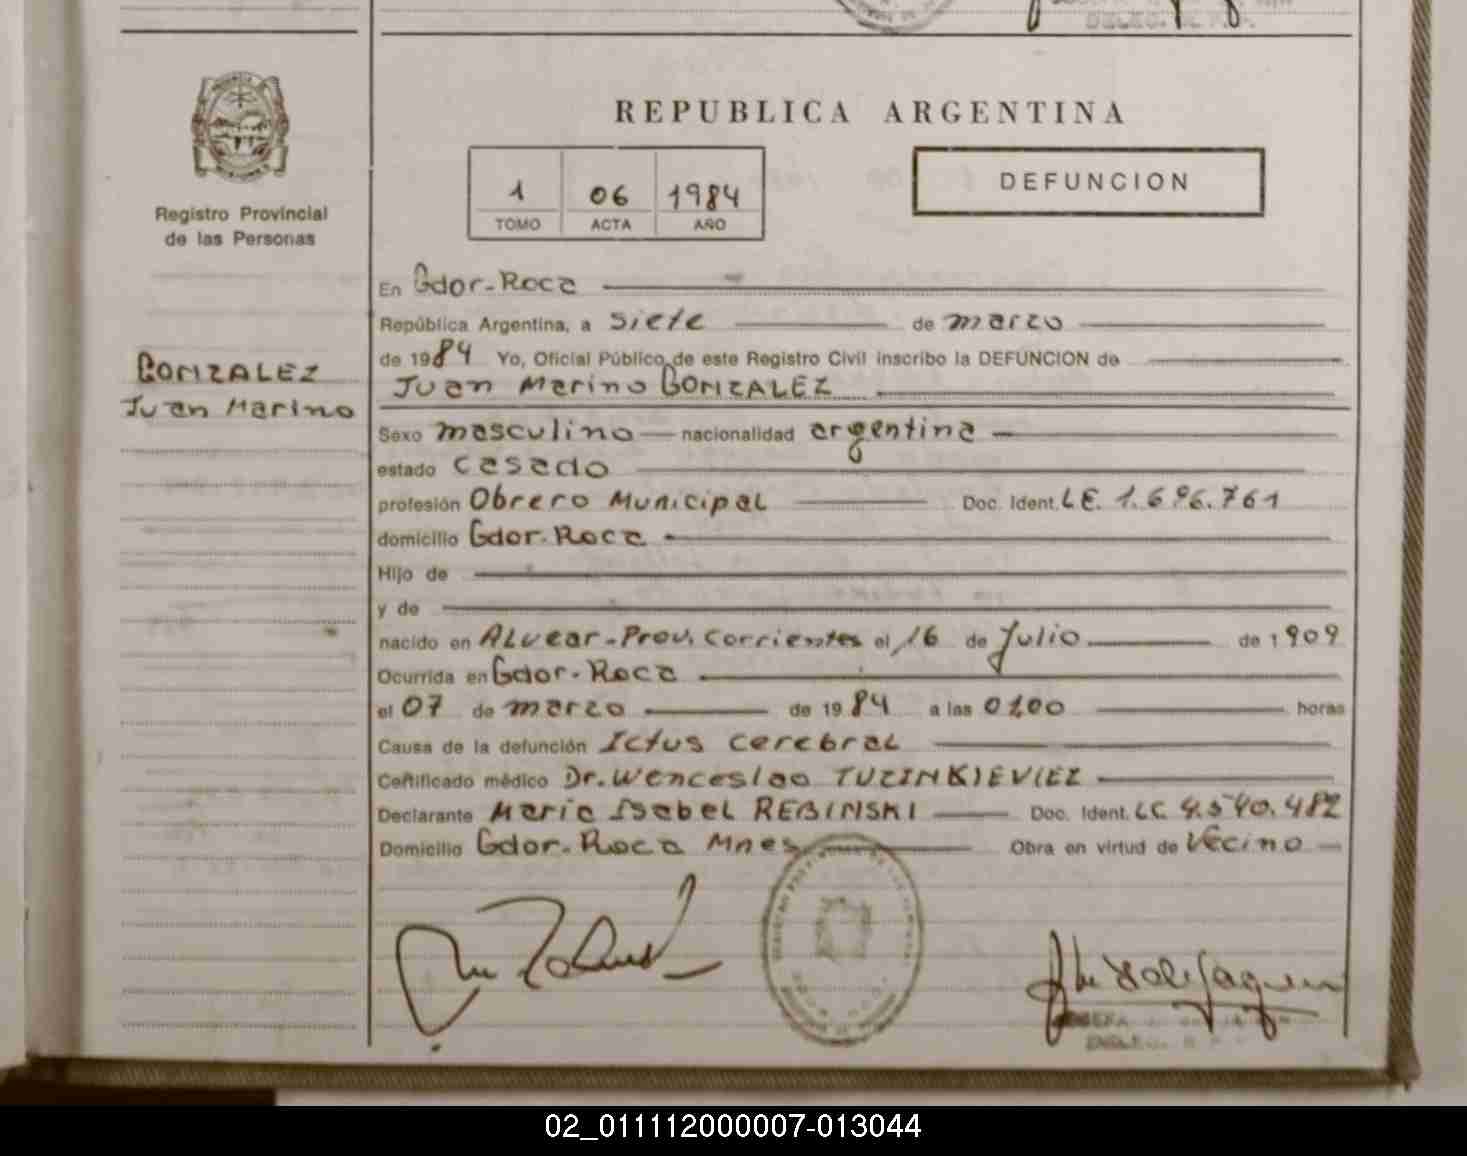 REPUBLICA ARGENTINA
1 06 1984
TOMO ACTA AÑO
DEFUNCION
Registro Provincial
de las Personas
GONZALEZ
Juan Marino
En Gdor-Roca
República Argentina, a siete de marzo
de 1984 Yo, Oficial Público de este Registro Civil inscribo la DEFUNCION de
Juan Marino GONZALEZ
Sexo masculino nacionalidad argentina
estado casado
profesión Obrero Municipal Doc. Ident. LE. 1.696.761
domicilio Gdor-Roca
Hijo de
y de
nacido en Alvear-Prov. Corrientes el 16 de Julio de 1909
Ocurrida en Gdor-Roca
el 07 de marzo de 1984 a las 0100 horas
Causa de la defunción Ictus cerebral
Certificado médico Dr. Wenceslao TUZINKIEVIEZ
Declarante Maria Isabel REBINSKI Doc. Ident. LC 4.540.482
Domicilio Gdor-Roca Mnes Obra en virtud de Vecino
02_011112000007-013044